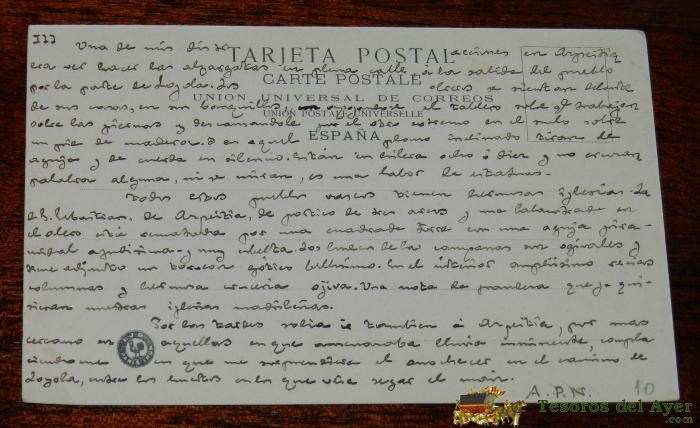 III
Una de mis distracciones en Azpeitia
TARJETA POSTAL
era ver hacer las alpargatas en plena calle á la salida del pueblo
CARTE POSTALE
por la parte de Loyola. Los se sientan delante
UNION UNIVERSAL DE CORREOS
de sus casas, en sus banquillos, el tablero sobre el que trabajan
UNION POSTALE UNIVERSELLE
sobre las piernas y descansando por el otro extremo en el suelo sobre
ESPAÑA
un pie de madera. en aquel plano inclinado tiran de
aguja y de cuerda en silencio. Están en hilera ocho ó diez y no cruzan
palabra alguna, ni se miran, es una labor de estatuas.
Todos estos pueblos vascos tienen hermosas iglesias. La
de S. Sebastian, de Azpeitia, de pórtico de tres arcos y una balaustrada en
el otro rematada por una cuadrada torre con una aguja pira-
midal agudísima y muy esbelta. Los huecos de la campana son ogivales y
tiene adjunto un gótico bellísimo. En el interior amplísimo recias
columnas y hermosa crucería ojiva. Una nota de grandeza que ya qui-
sieran nuestras iglesias madrileñas.
Por las tardes solía ir tambien á Azpeitia, por mas
cercano en aquellas en que amenazaba lluvia inminente, compla
ciendome en que me sorprendiera el anochecer en el camino de
Loyola, entre los huertos en los que veia segar el maiz.
A.P.N.
10
Tesoros del Ayer
.com